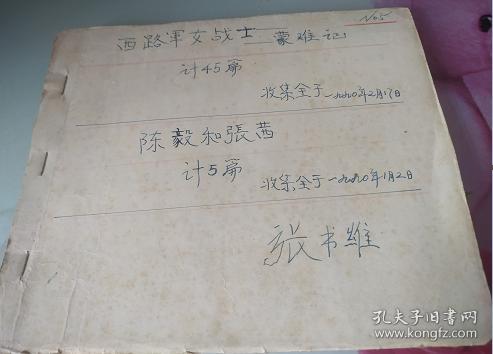 No5
西路军女战士蒙难记
计45篇
收集全于一九九〇年2月17日
陈毅和張茜
计5篇
收集全于一九九〇年1月2日
张书维
孔夫子旧书网
www.kongfz.com